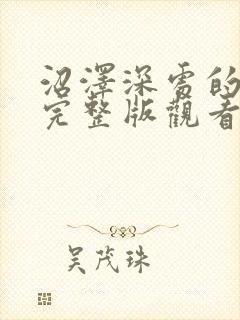 沼澤深雪的
完整版觀看
吴茂珠